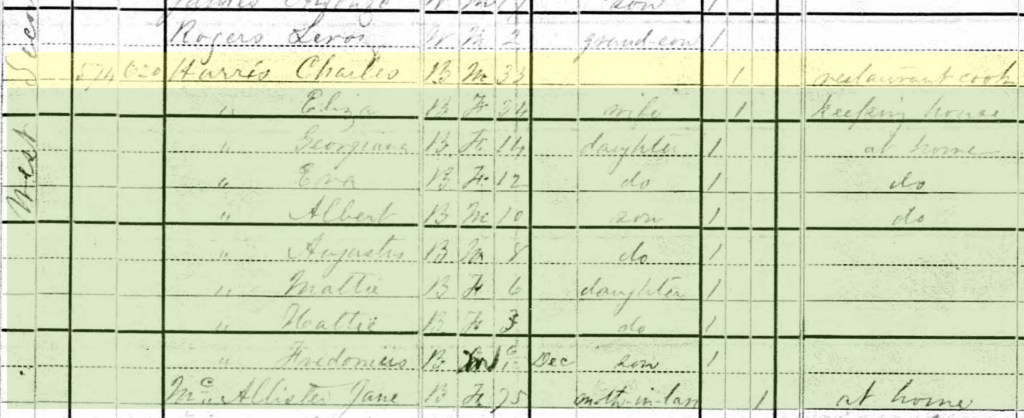 son 1
Rogers Leroy W M 2 grand-son 1
574 620 Harris Charles B M 33 1 restaurant cook
" Eliza B F 34 wife 1 keeping house
" Georgiana B F 14 daughter 1 at home
" Eva B F 12 do 1 do
" Albert B M 10 son 1 do
" Augustus B M 8 do 1
" Mattie B F 6 daughter 1
" Hattie B F 3 do 1
" B M Dec son 1
McAllister Jane B F 75 mother-in-law 1 at home
West